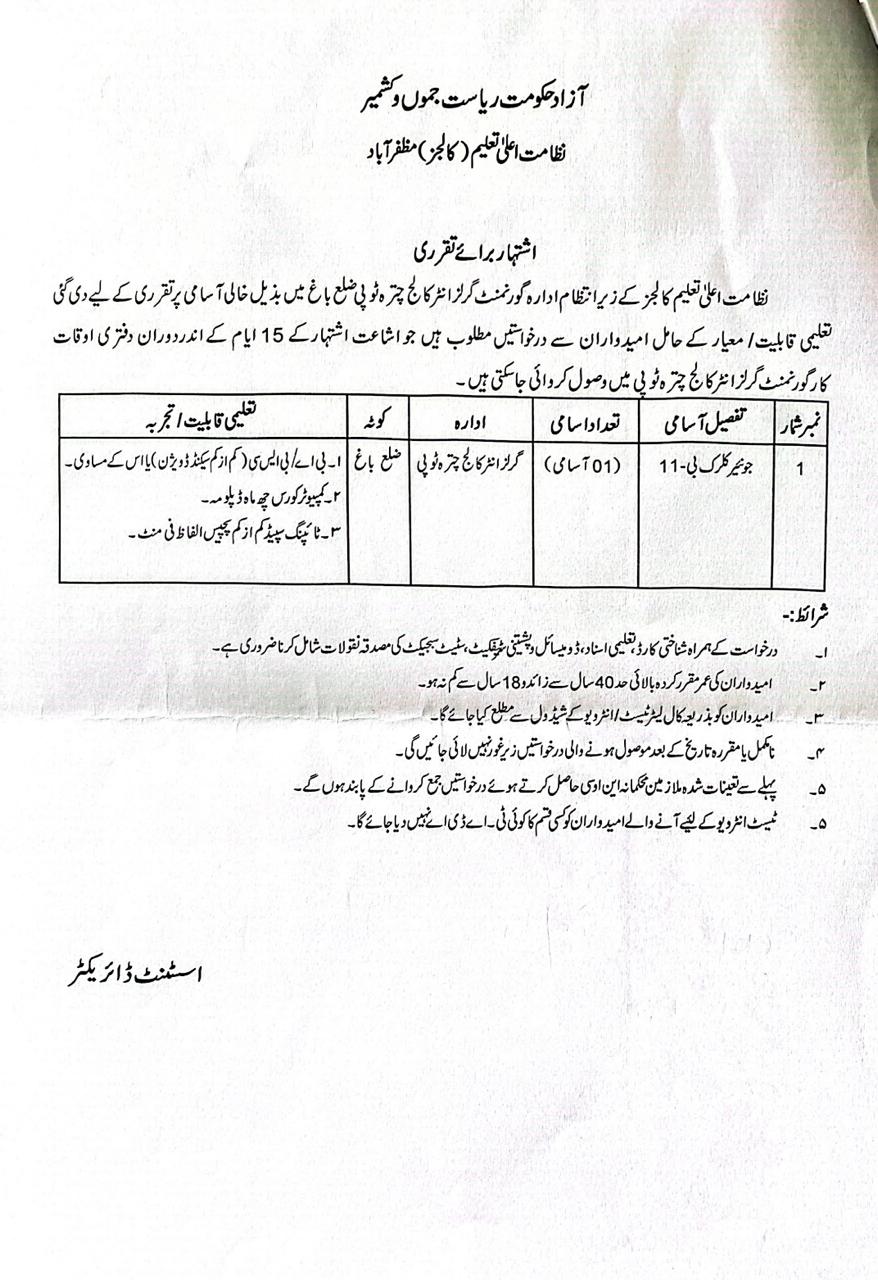 آزاد حکومت ریاست جموں و کشمیر
نظامت اعلیٰ تعلیم (کالجز) مظفر آباد
اشتہار برائے تقرری
نظامت اعلیٰ تعلیم کالجز کے زیر انتظام ادارہ گورنمنٹ گرلز انٹر کالج چترہ ٹوپی ضلع باغ میں بذیل خالی آسامی پر تقرری کے لیے دی گئی
تعلیمی قابلیت / معیار کے حامل امیدواران سے درخواستیں مطلوب ہیں جو اشاعت اشتہار کے 15 ایام کے اندر دوران دفتری اوقات
کار گورنمنٹ گرلز انٹر کالج چترہ ٹوپی میں وصول کروائی جاسکتی ہیں ۔
نمبر شمار تفصیل آسامی تعداد اسامی ادارہ کوٹہ تعلیمی قابلیت / تجربہ
1 جونیئر کلرک بی-11 (01 آسامی) گرلز انٹر کالج چترہ ٹوپی ضلع باغ ۱۔ بی اے/ بی ایس سی (کم از کم سیکنڈ ڈویژن) یا اس کے مساوی۔
۲۔ کمپیوٹر کورس چھ ماہ ڈپلومہ۔
۳۔ ٹائپنگ سپیڈ کم از کم پچیس الفاظ فی منٹ ۔
شرائط:-
۱۔ درخواست کے ہمراہ شناختی کارڈ، تعلیمی اسناد، ڈومیسائل و پشتینی سٹیفکیٹ، سٹیٹ سبجیکٹ کی مصدقہ نقولات شامل کرنا ضروری ہے۔
۲۔ امیدواران کی عمر مقرر کردہ بالائی حد 40 سال سے زائد و 18 سال سے کم نہ ہو۔
۳۔ امیدواران کو بذریعہ کال لیٹر ٹیسٹ / انٹرویو کے شیڈول سے مطلع کیا جائے گا۔
۴۔ نامکمل یا مقررہ تاریخ کے بعد موصول ہونے والی درخواستیں زیر غور نہیں لائی جائیں گی۔
۵۔ پہلے سے تعینات شدہ ملازمین محکمانہ این اوسی حاصل کرتے ہوئے درخواستیں جمع کروانے کے پابند ہوں گے۔
۵۔ ٹیسٹ انٹرویو کے لئیے آنے والے امیدواران کو کسی قسم کا کوئی ٹی۔اے ڈی اے نہیں دیا جائے گا۔
اسسٹنٹ ڈائریکٹر